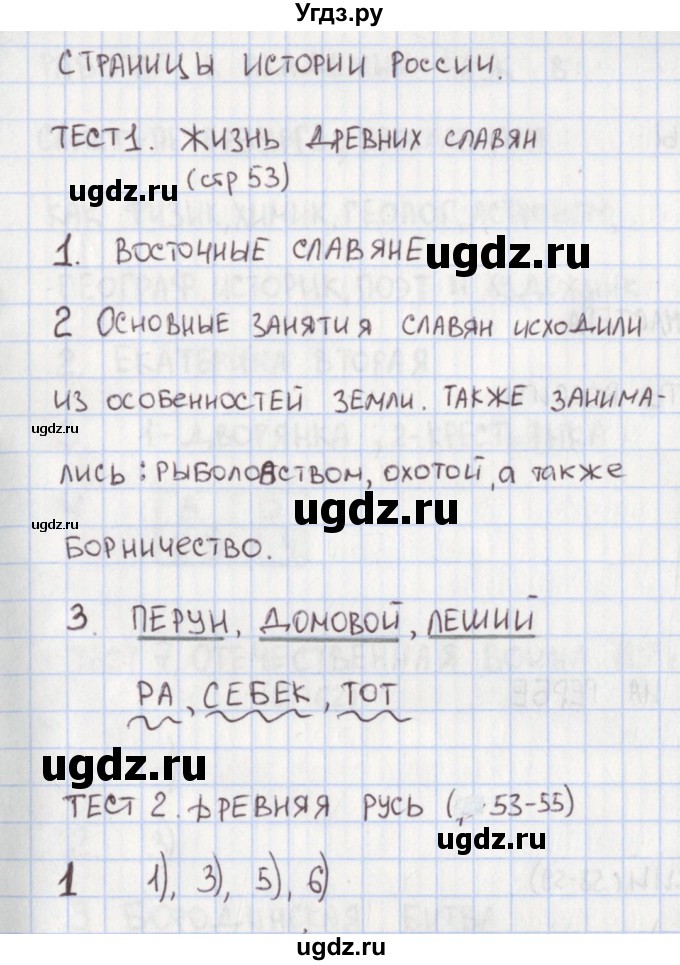 Угдз.ру
СТРАНИЦЫ ИСТОРИИ РОССИИ.
ТЕСТ 1. ЖИЗНЬ ДРЕВНИХ СЛАВЯН
ugdz.ru (стр 53)
1. ВОСТОЧНЫЕ СЛАВЯНЕ ugdz.ru
2 ОСНОВНЫЕ ЗАНЯТИЯ СЛАВЯН ИСХОДИЛИ
ИЗ ОСОБЕННОСТЕЙ ЗЕМЛИ. ТАКЖЕ ЗАНИМА-
ugdz.ru
ЛИСЬ: РЫБОЛОВСТВОМ, ОХОТОЙ, а также
ugdz.ru ugdz.ru
БОРНИЧЕСТВО.
3. ПЕРУН, ДОМОВОЙ, ЛЕШИЙ
РА, СЕБЕК, ТОТ
ugdz.ru
ТЕСТ 2. ДРЕВНЯЯ РУСЬ (53-55)
ugdz.ru
1 1), 3), 5), 6)
ugdz.ru